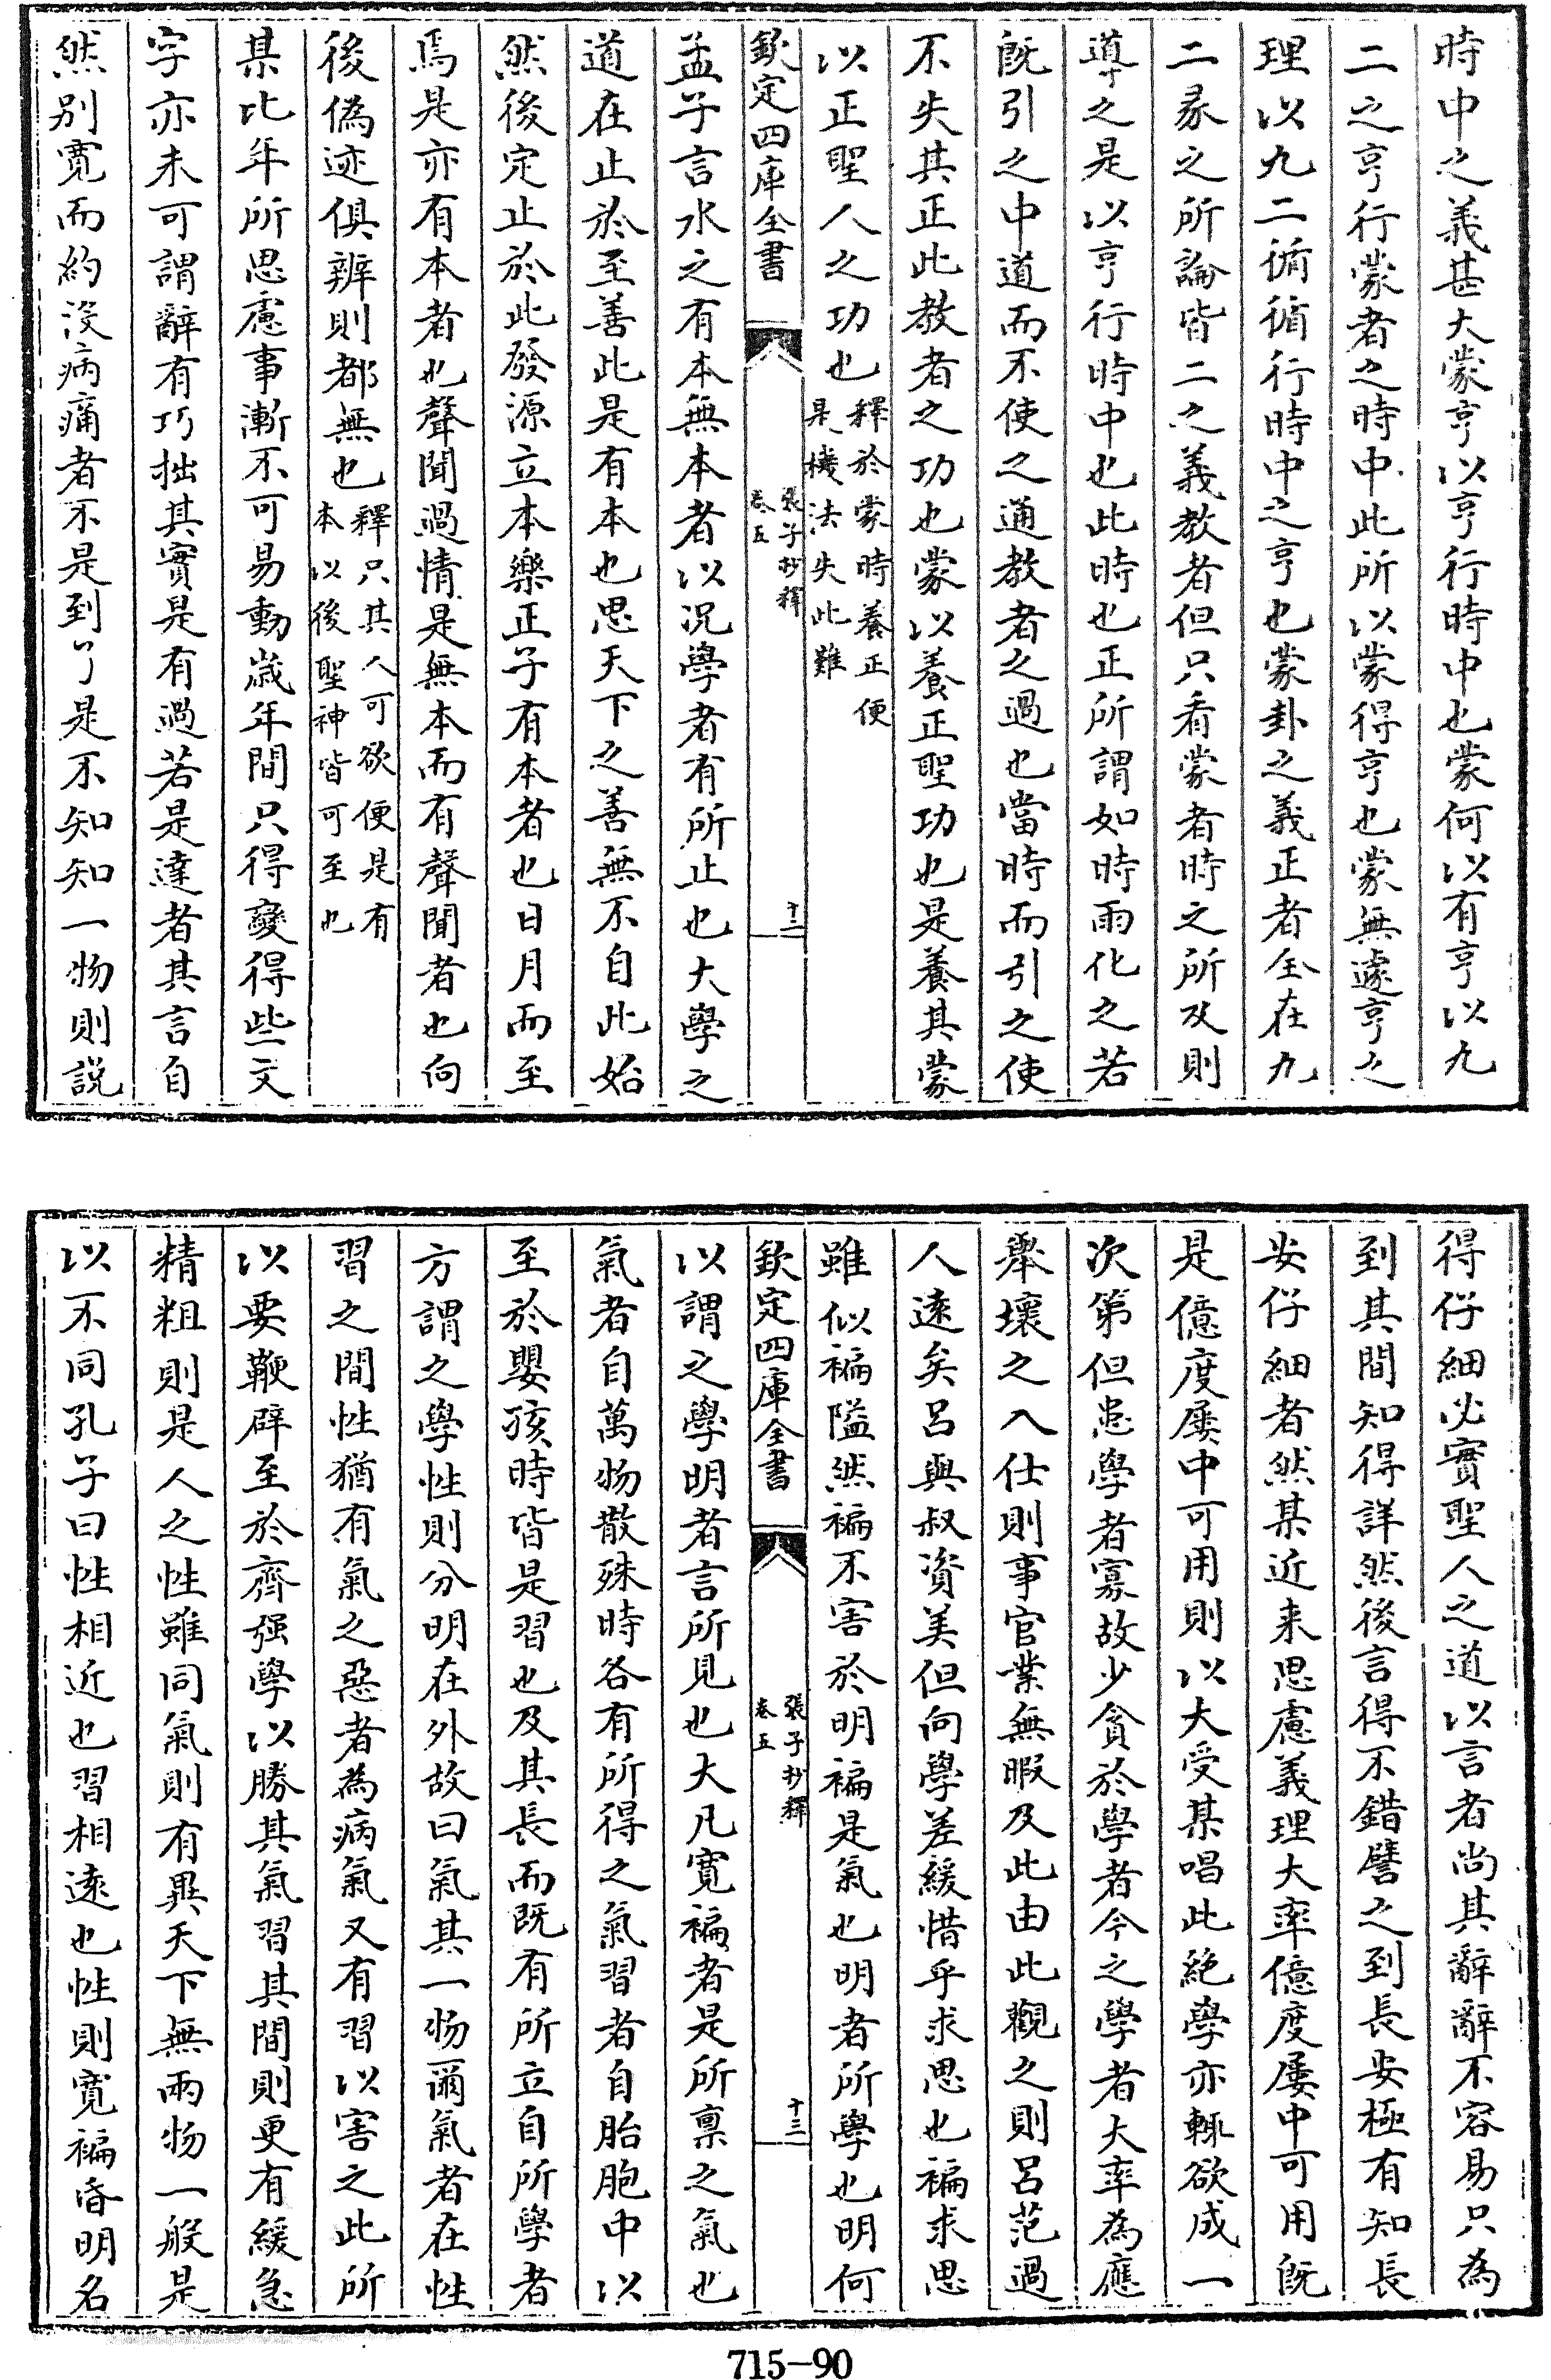 時中之義甚大蒙亨以亨行時中也蒙何以有亨以九
二之亨行蒙者之時中此所以蒙得亨也蒙無遽亨之
理以九二循循行時中之亨也蒙卦之義正者全在九
二彖之所論皆二之義教者但只看蒙者時之所及則
導之是以亨行時中也此時也正所謂如時雨化之若
既引之中道而不使之通教者之過也當時而引之使
不失其正此教者之功也蒙以養正聖功也是養其蒙
以正聖人之功也釋於蒙時養正便
是機法失此難
欽定四庫全書
張子抄釋
卷五
十二
孟子言水之有本無本者以況學者有所止也大學之
道在止於至善此是有本也思天下之善無不自此始
然後定止於此發源立本樂正子有本者也日月而至
焉是亦有本者也聲聞過情是無本而有聲聞者也向
後偽迹俱辨則都無也釋只其人可欲便是有
本以後聖神皆可至也
某比年所思慮事漸不可易動歲年間只得變得些文
字亦未可謂辭有巧拙其實是有過若是達者其言自
然別寬而約沒病痛者不是到了是不知知一物則說
得仔細必實聖人之道以言者尚其辭辭不容易只為
到其間知得詳然後言得不錯譬之到長安極有知長
安仔細者然某近来思慮義理大率億度屢中可用既
是億度屢中可用則以大受某唱此絶學亦輒欲成一
次第但患學者寡故少貪於學者今之學者大率為應
舉壞之入仕則事官業無暇及此由此觀之則呂范過
人遠矣呂與叔資美但向學差緩惜乎求思也褊求思
雖似褊隘然褊不害於明褊是氣也明者所學也明何
欽定四庫全書
張子抄釋
卷五
十三
以謂之學明者言所見也大凡寬褊者是所稟之氣也
氣者自萬物散殊時各有所得之氣習者自胎胞中以
至於嬰孩時皆是習也及其長而既有所立自所學者
方謂之學性則分明在外故曰氣其一物爾氣者在性
習之間性猶有氣之惡者為病氣又有習以害之此所
以要鞭辟至於齊强學以勝其氣習其間則更有緩急
精粗則是人之性雖同氣則有異天下無兩物一般是
以不同孔子曰性相近也習相遠也性則寬褊昏明名
715-90